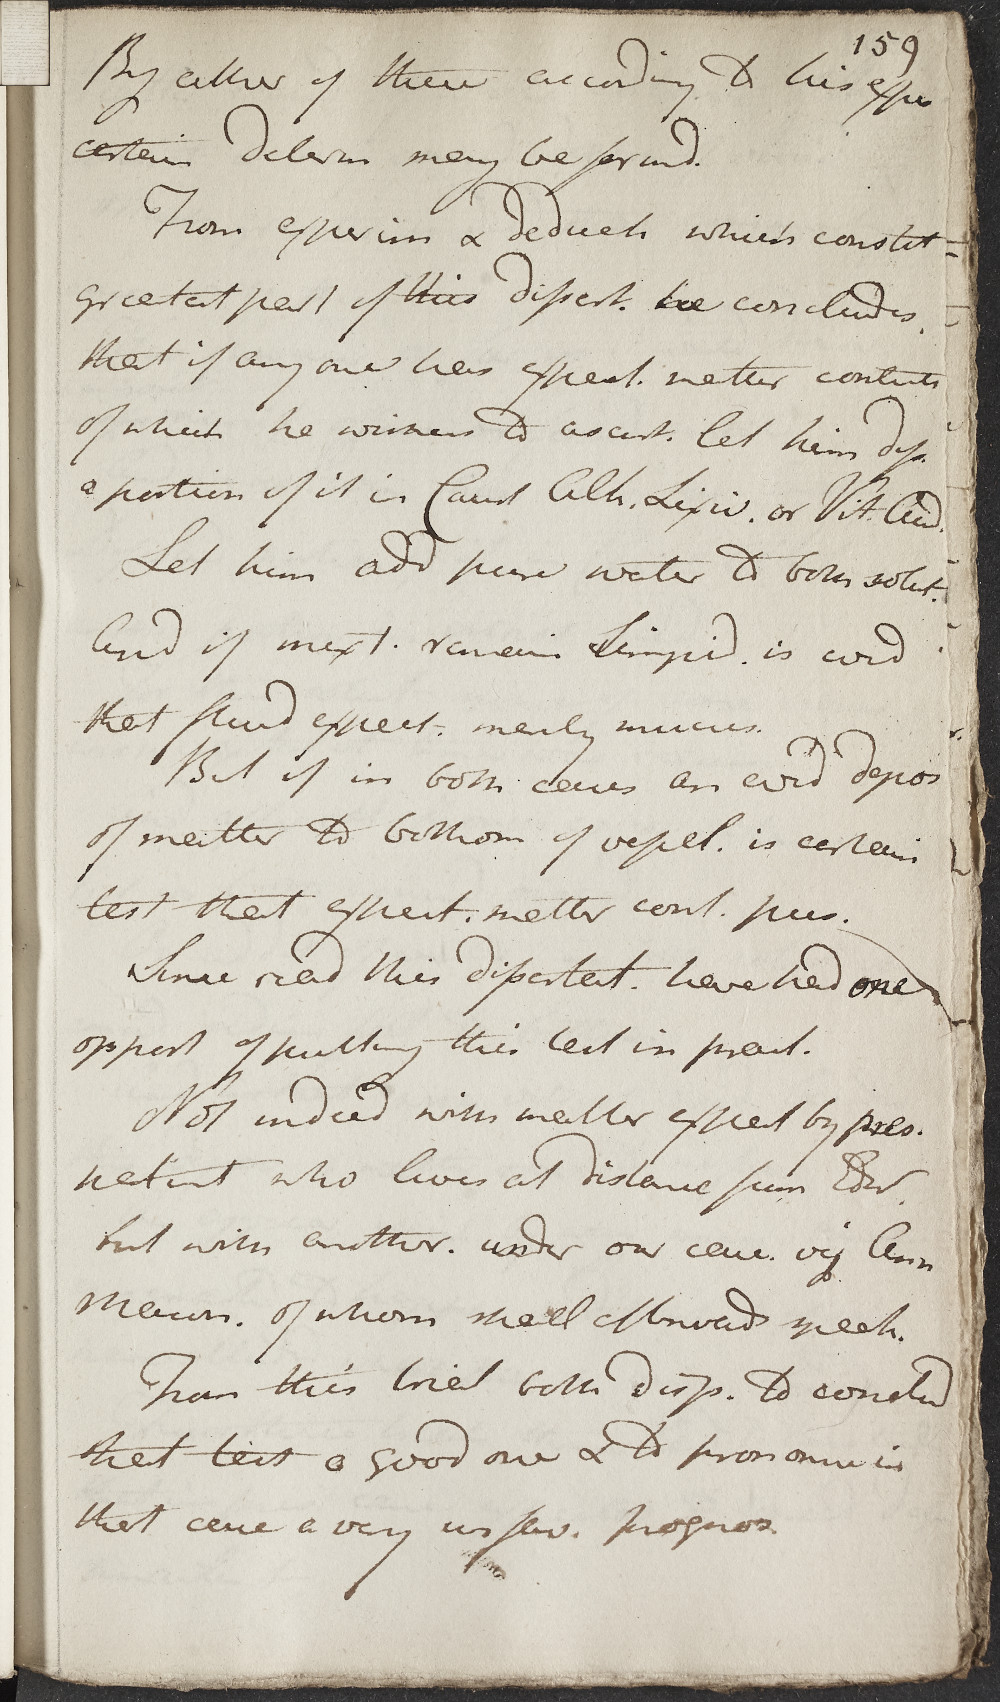 159
By either of these according to his exper
certain determ may be formd.
From experim & deduct which constit
greatest part of this dissert. he concludes.
that if any one has expect. matter contents
of which he wishes to ascert. let him diss.
a portion of it in Caust Alk. Lixiv. or Vit. Acid.
Let him add pure water to both solut.
And if mixt. remain Limpid. is evid
that fluid expect. merly mucus.
But if in both cases an evid depos
of matter to bottom of vessel. is certain
test that expect. matter cont. pus.
Since read this dissertat. have had one
opport of putting this test in pract.
Not indeed with matter expect by pres.
patient who lives at distance from Edr.
but with another. under our care. viz Ann
Mason. of whom shall afterwards speak.
From this trial both disp. to conclud
that test a good one & to pronounce in
that case a very unfav. prognos.